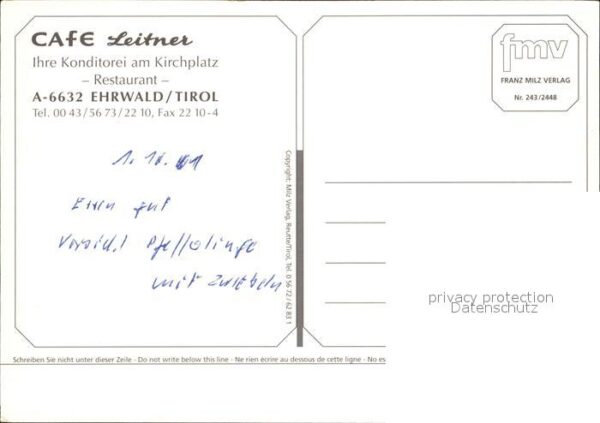 CAFE Leitner
Ihre Konditorei am Kirchplatz
– Restaurant –
A-6632 EHRWALD/TIROL
Tel. 00 43/56 73/22 10, Fax 22 10-4
fmv
FRANZ MILZ VERLAG
Nr. 243/2448
Essen gut
Vorsicht Pfefferlinge
mit Zwiebeln
Copyright: Milz Verlag, Reutte/Tirol, Tel. 0 56 72 / 62 83 1
privacy protection
Datenschutz
Schreiben Sie nicht unter dieser Zeile - Do not write below this line - Ne rien écrire au dessous de cette ligne - No es